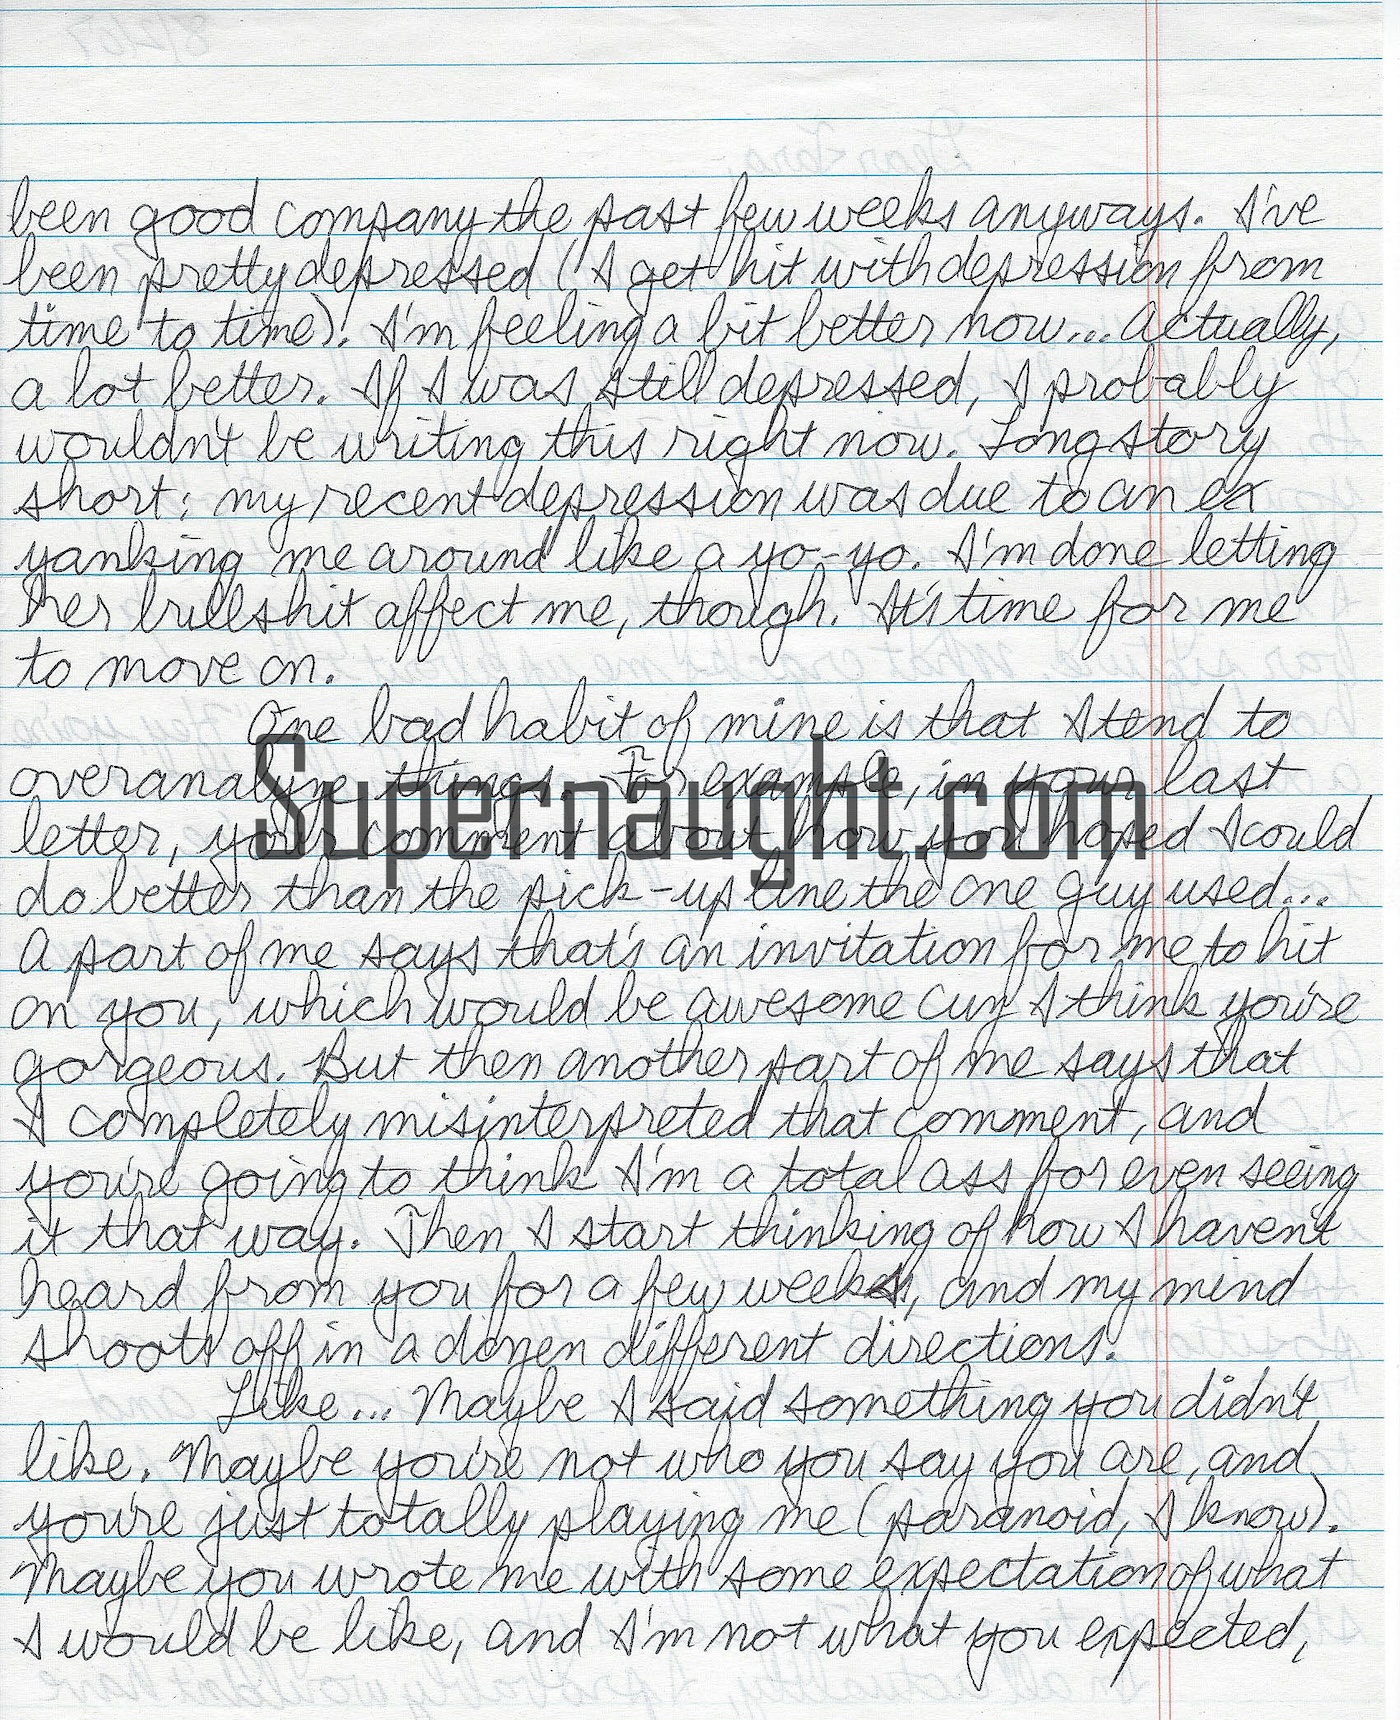 been good company the past few weeks anyways. I've
been pretty depressed (I get hit with depression from
time to time). I'm feeling a bit better now... actually,
a lot better. If I was still depressed, I probably
wouldn't be writing this right now. Long story
short; my recent depression was due to an ex
yanking me around like a yo-yo. I'm done letting
her bullshit affect me, though. It's time for me
to move on.
One bad habit of mine is that I tend to
overanalyze things. For example, in your last
Supernaught.com
letter, your comment about how you hoped I could
do better than the pick-up line the one guy used...
A part of me says that's an invitation for me to hit
on you, which would be awesome cuz I think you're
gorgeous. But then another part of me says that
I completely misinterpreted that comment, and
you're going to think I'm a total ass for even seeing
it that way. Then I start thinking of how I haven't
heard from you for a few weeks, and my mind
shoots off in a dozen different directions.
Like... Maybe I said something you didn't
like. Maybe you're not who you say you are, and
you're just totally playing me (paranoid, I know).
Maybe you wrote me with some expectation of what
I would be like, and I'm not what you expected,